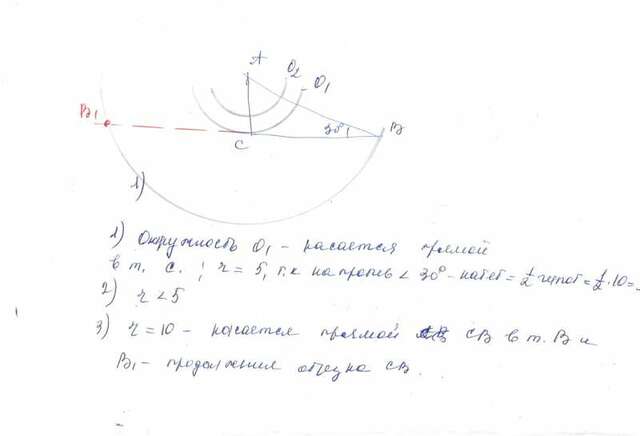 A
O2
O1
B1
30°
B
C
1)
1) Окружность O1 – касается прямой
в т. C. ; r = 5, т.к напротив < 30° - катет = 1/2 гипот = 1/2 · 10 =
2) r < 5
3) r = 10 – касается прямой CB в т. B и
B1 – продолжения отрезка CB.